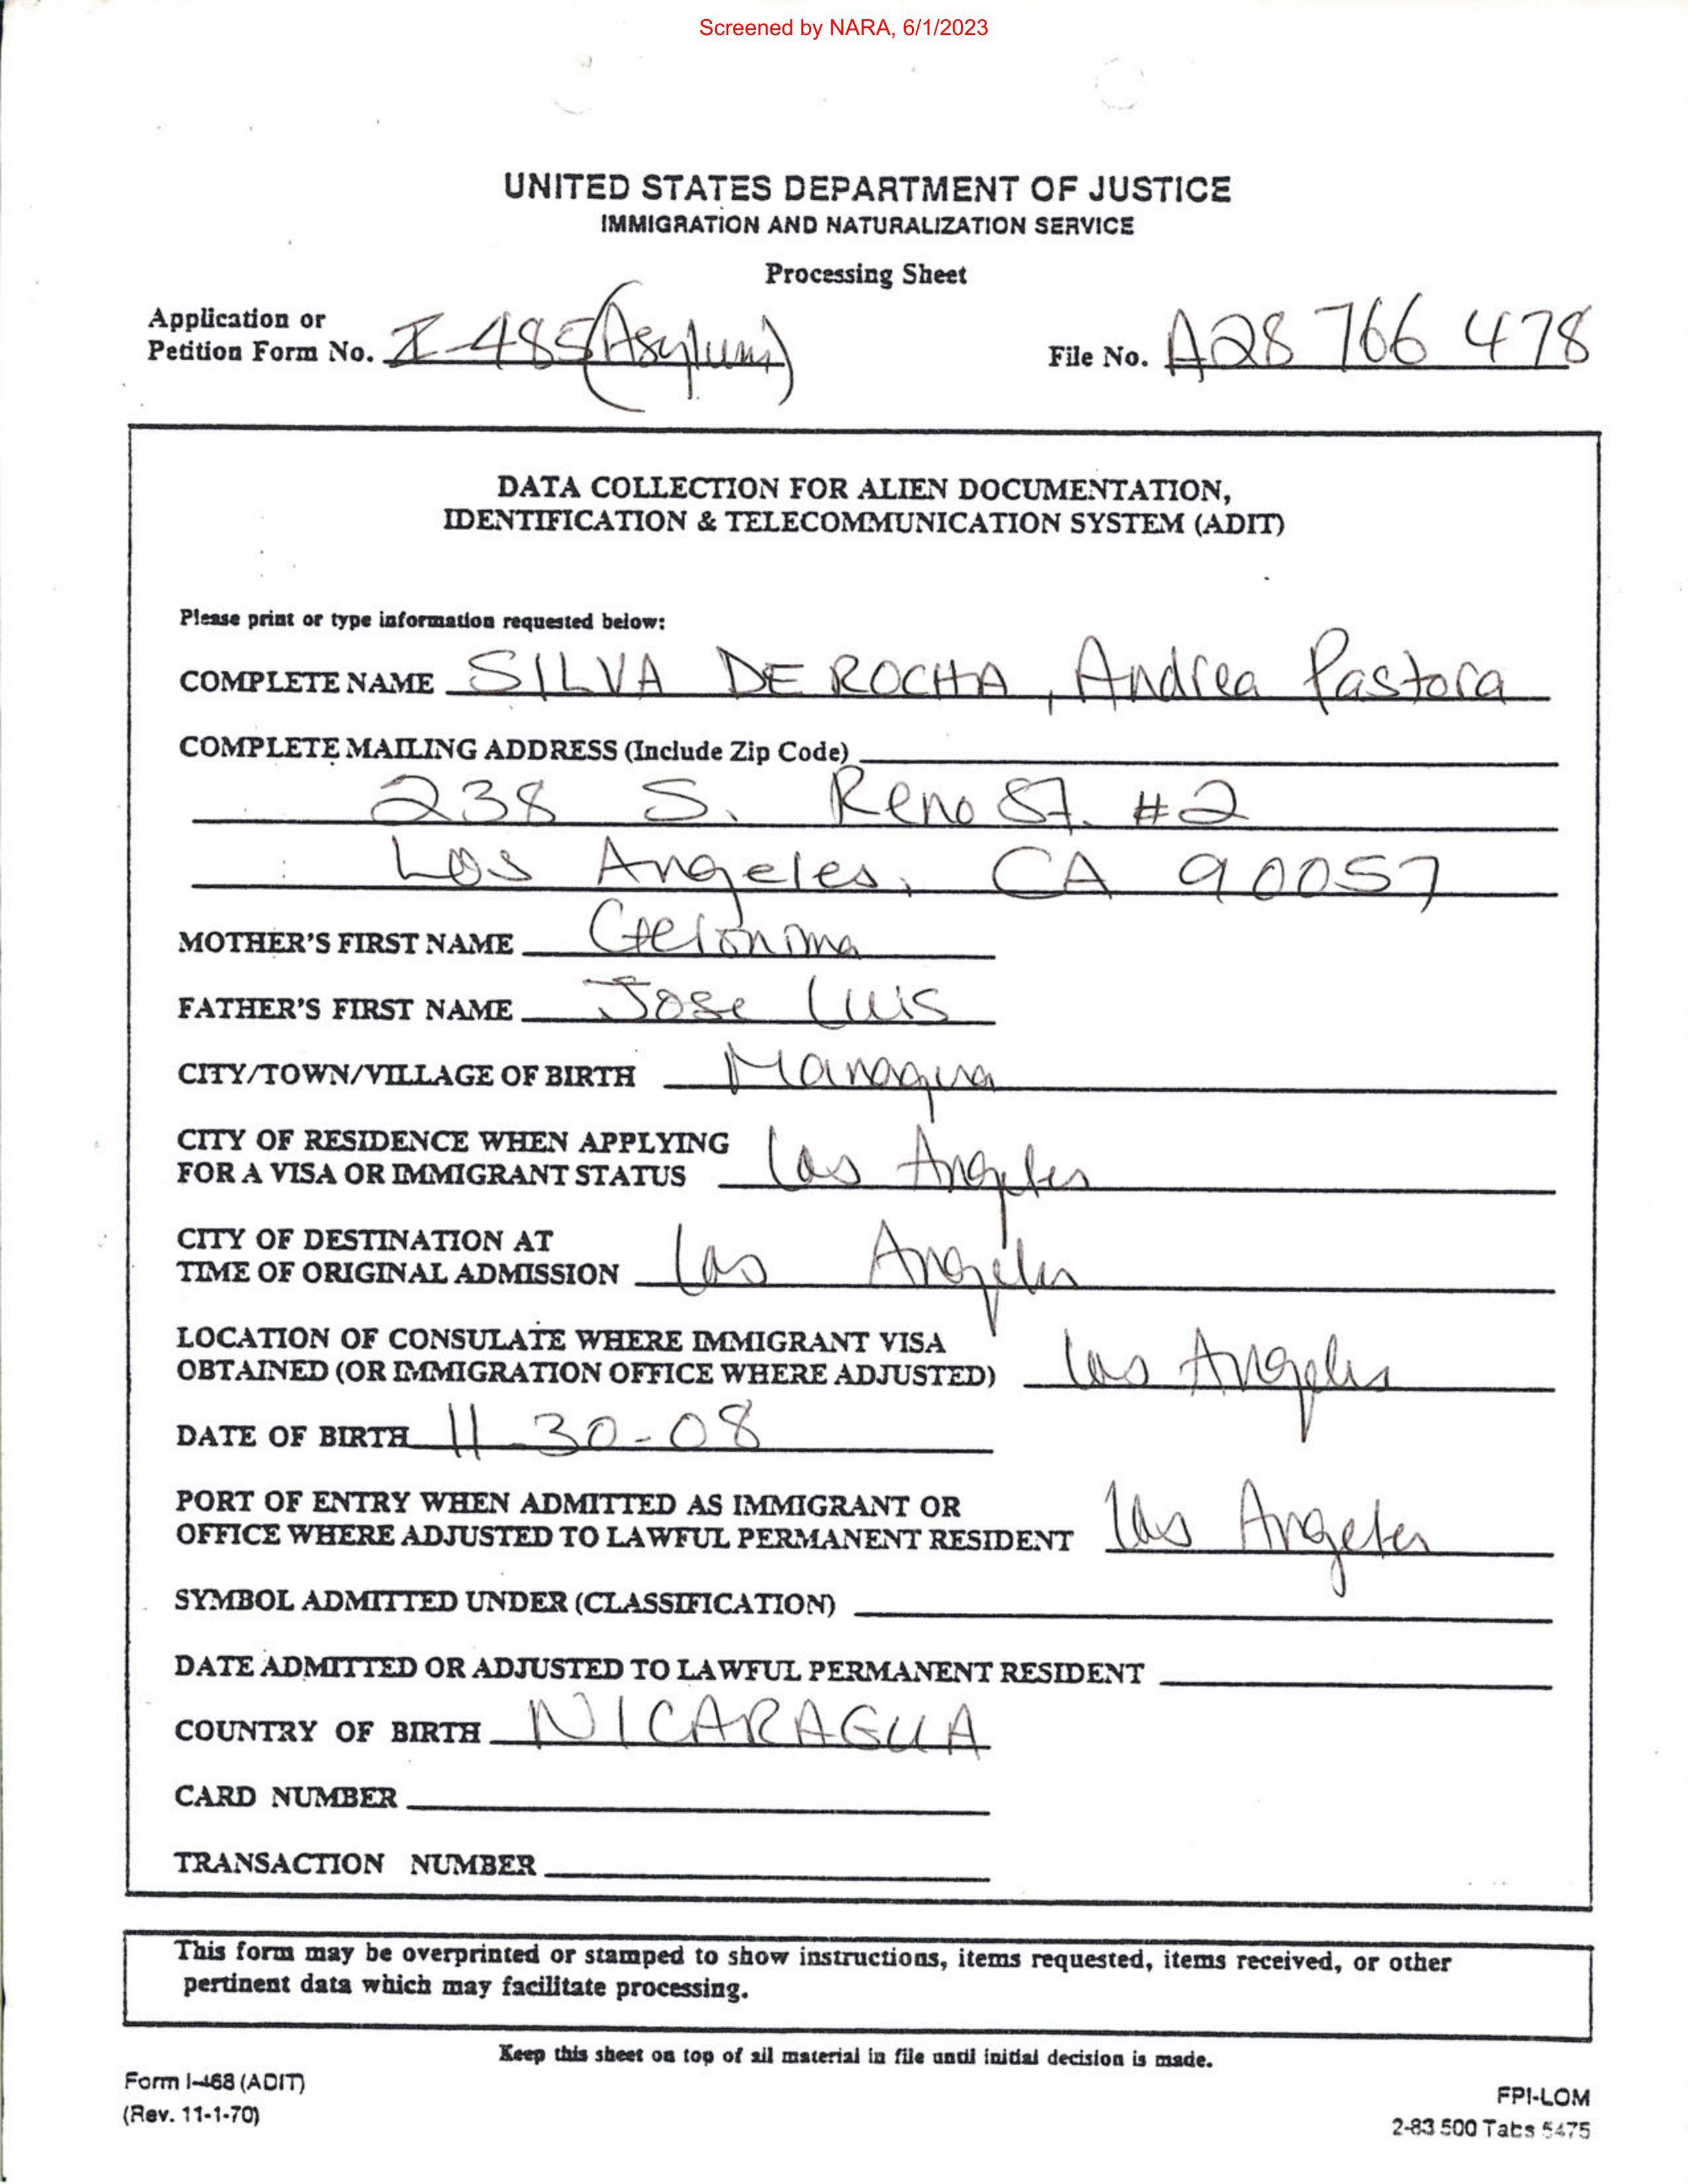 Screened by NARA, 6/1/2023
UNITED STATES DEPARTMENT OF JUSTICE
IMMIGRATION AND NATURALIZATION SERVICE
Processing Sheet
Application or
Petition Form No. I-485 (Asylum)
File No. A28 766 478
DATA COLLECTION FOR ALIEN DOCUMENTATION,
IDENTIFICATION & TELECOMMUNICATION SYSTEM (ADIT)
Please print or type information requested below:
COMPLETE NAME SILVA DE ROCHA, Andrea Pastora
COMPLETE MAILING ADDRESS (Include Zip Code)
238 S. Reno St. #2
Los Angeles, CA 90057
MOTHER'S FIRST NAME Geronima
FATHER'S FIRST NAME Jose Luis
CITY/TOWN/VILLAGE OF BIRTH Managua
CITY OF RESIDENCE WHEN APPLYING
FOR A VISA OR IMMIGRANT STATUS Los Angeles
CITY OF DESTINATION AT
TIME OF ORIGINAL ADMISSION Los Angeles
LOCATION OF CONSULATE WHERE IMMIGRANT VISA
OBTAINED (OR IMMIGRATION OFFICE WHERE ADJUSTED) Los Angeles
DATE OF BIRTH 11-30-08
PORT OF ENTRY WHEN ADMITTED AS IMMIGRANT OR
OFFICE WHERE ADJUSTED TO LAWFUL PERMANENT RESIDENT Los Angeles
SYMBOL ADMITTED UNDER (CLASSIFICATION)
DATE ADMITTED OR ADJUSTED TO LAWFUL PERMANENT RESIDENT
COUNTRY OF BIRTH NICARAGUA
CARD NUMBER
TRANSACTION NUMBER
This form may be overprinted or stamped to show instructions, items requested, items received, or other
pertinent data which may facilitate processing.
Keep this sheet on top of all material in file until initial decision is made.
Form I-468 (ADIT)
(Rev. 11-1-70)
FPI-LOM
2-83 500 Tabs 5475